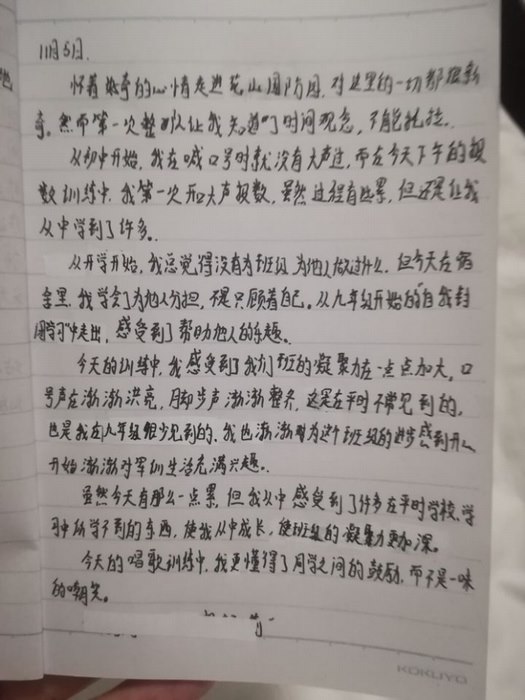 11月5日.
怀着好奇的心情走进花山国防园,对这里的一切都很新
奇。然而第一次整队让我知道了时间观念,不能托拉。
从初中开始,我在喊口号时就没有大声过,而在今天下午的报
数训练中,我第一次开口大声报数,虽然过程有些累,但还是让我
从中学到了许多。
从开学开始,我总觉得没有为班级,为他人做过什么,但今天在宿
舍里,我学会了为他人分担,不是只顾着自己。从九年级开始的"自我封
闭学习"中走出,感受到了帮助他人的乐趣。
今天的训练中,我感受到了我们班的凝聚力在一点点加大,口
号声在渐渐洪亮,脚步声渐渐整齐,这是在平时不常见到的,
也是我在九年级很少见到的,我也渐渐对为这个班级的进步感到开心
开始渐渐对军训生活充满兴趣。
虽然今天有那么一点累,但我从中感受到了许多在平时学校、学
习中所学不到的东西,使我从中成长,使班级的凝聚力更加深。
今天的唱歌训练中,我更懂得了同学之间的鼓励,而不是一味
的嘲笑。
KOKUYO